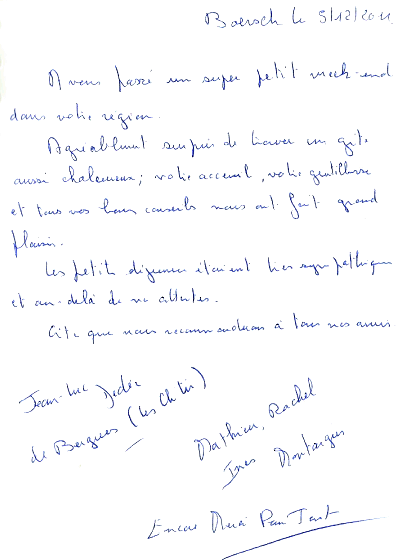 Boersch le 5/12/2011
Avons passé un super petit week-end
dans votre région.
Agréablement surpris de trouver un gîte
aussi chaleureux; votre accueil, votre gentillesse
et tous vos bons conseils nous ont fait grand
plaisir.
Les petits déjeuners étaient très sympathiques
et au-delà de nos attentes.
Gîte que nous recommanderons à tous nos amis
Jean-Luc
de Bergues (les Ch'tis)
Mathieu, Rachel
Ines Montargis
Encore Merci Pour Tout